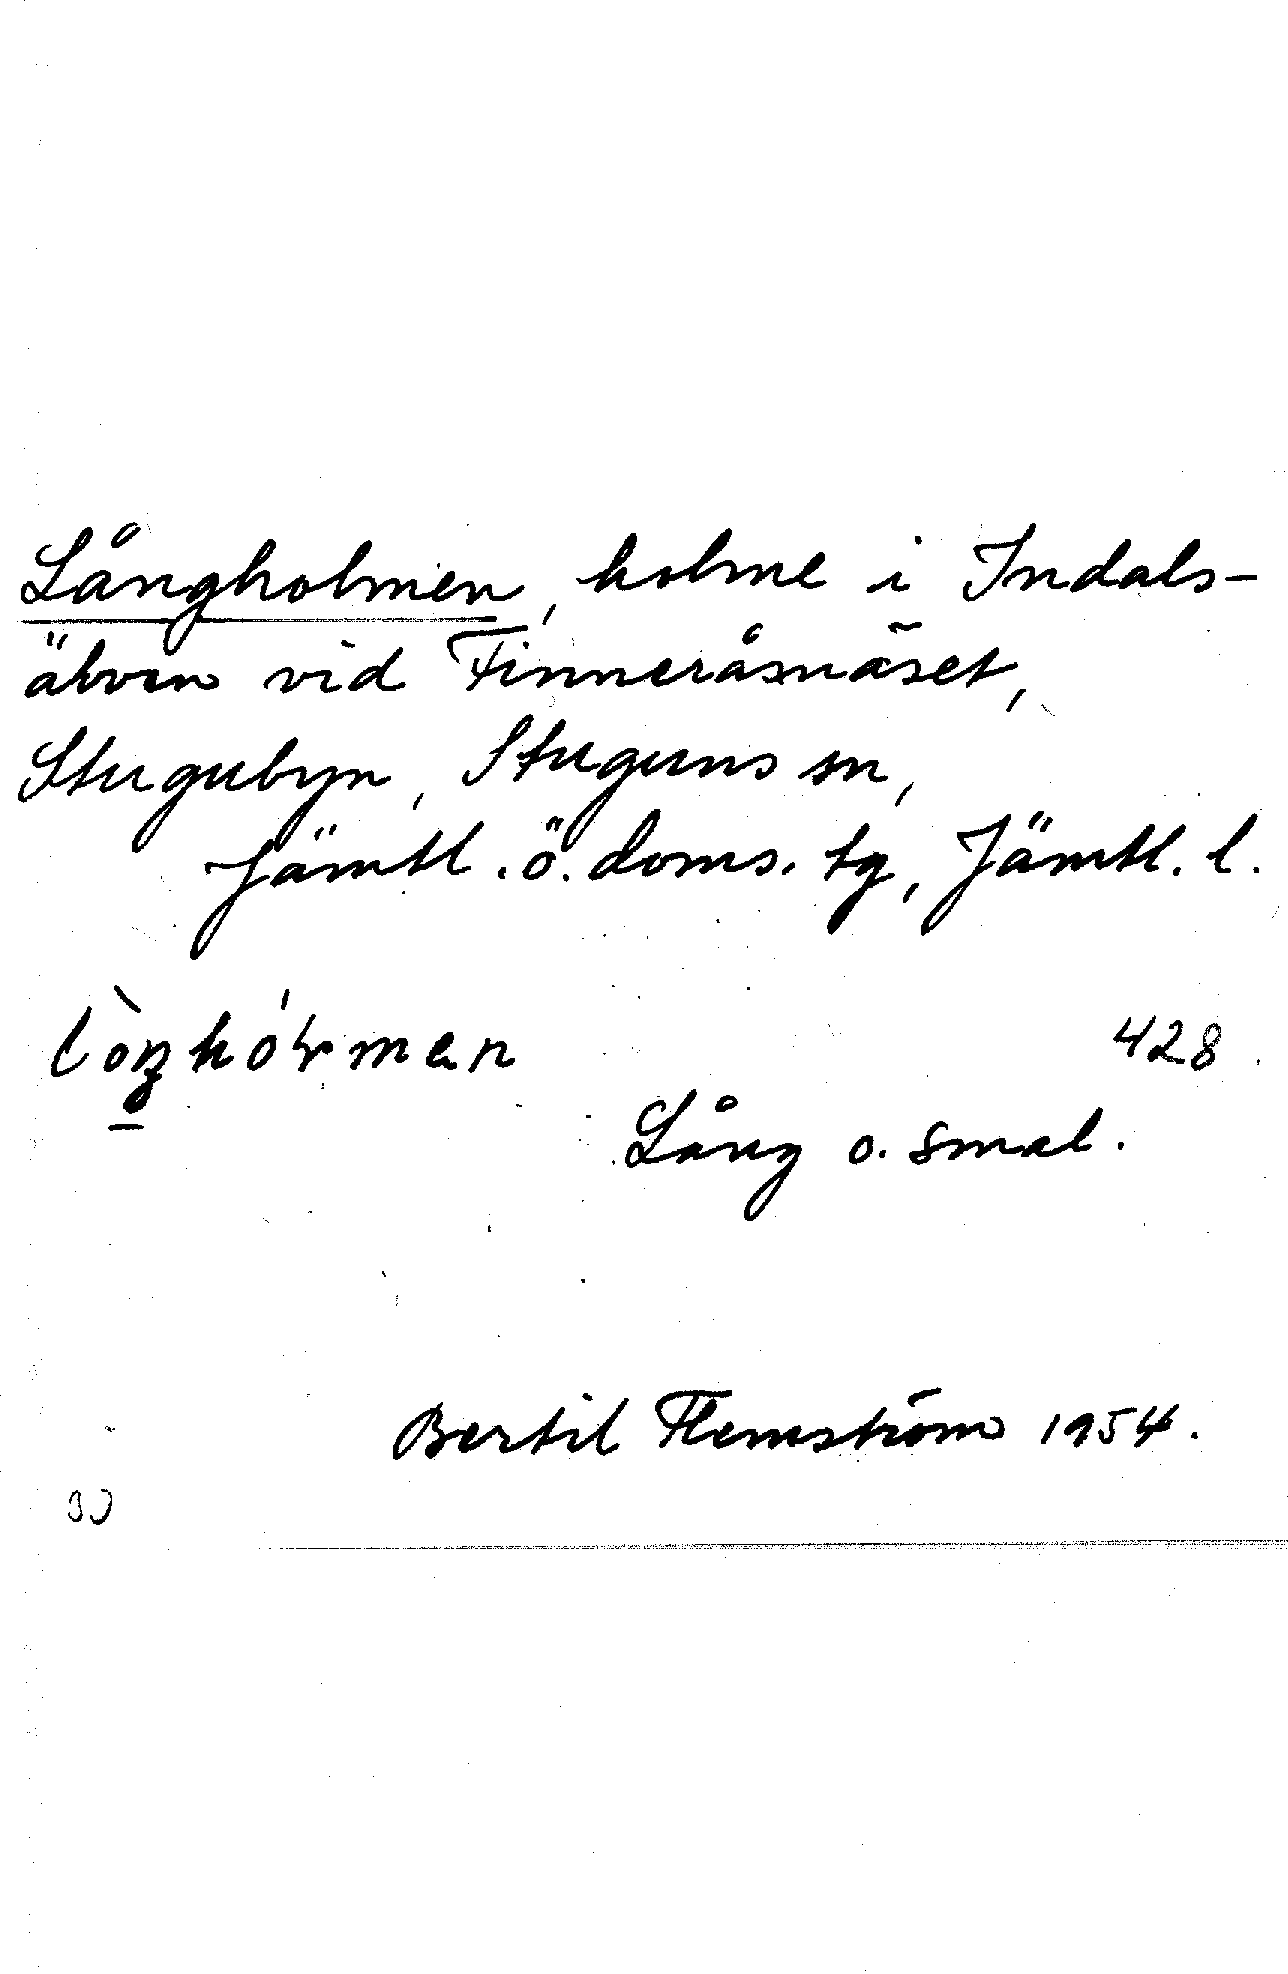 Långholmen, holme i Indals-
älven vid Finneråsnäset,
Stugubyn, Stuguns sn,
Jämtl. ö. doms. tg, Jämtl. l.
428
Lång o. smal.
Bertil Flemström 1954.